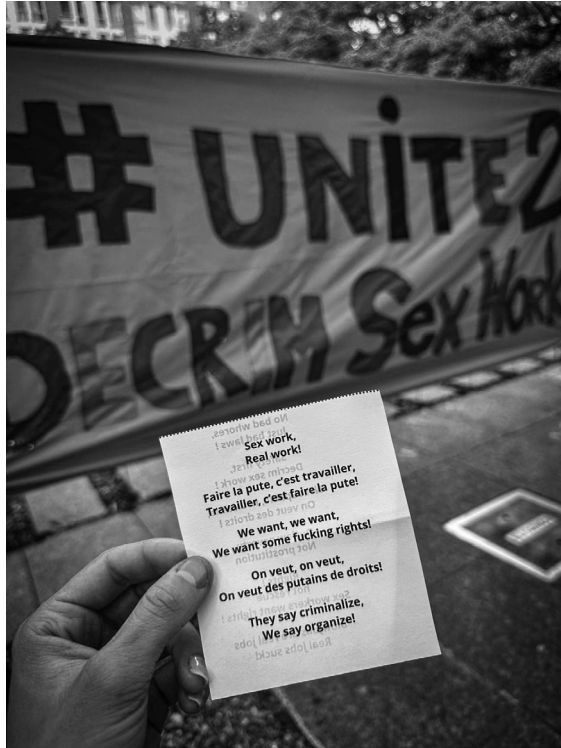 # UNiTE2
DECRIM Sex Work
Sex work,
Real work!
Faire la pute, c'est travailler,
Travailler, c'est faire la pute!
We want, we want,
We want some fucking rights!
On veut, on veut,
On veut des putains de droits!
They say criminalize,
We say organize!